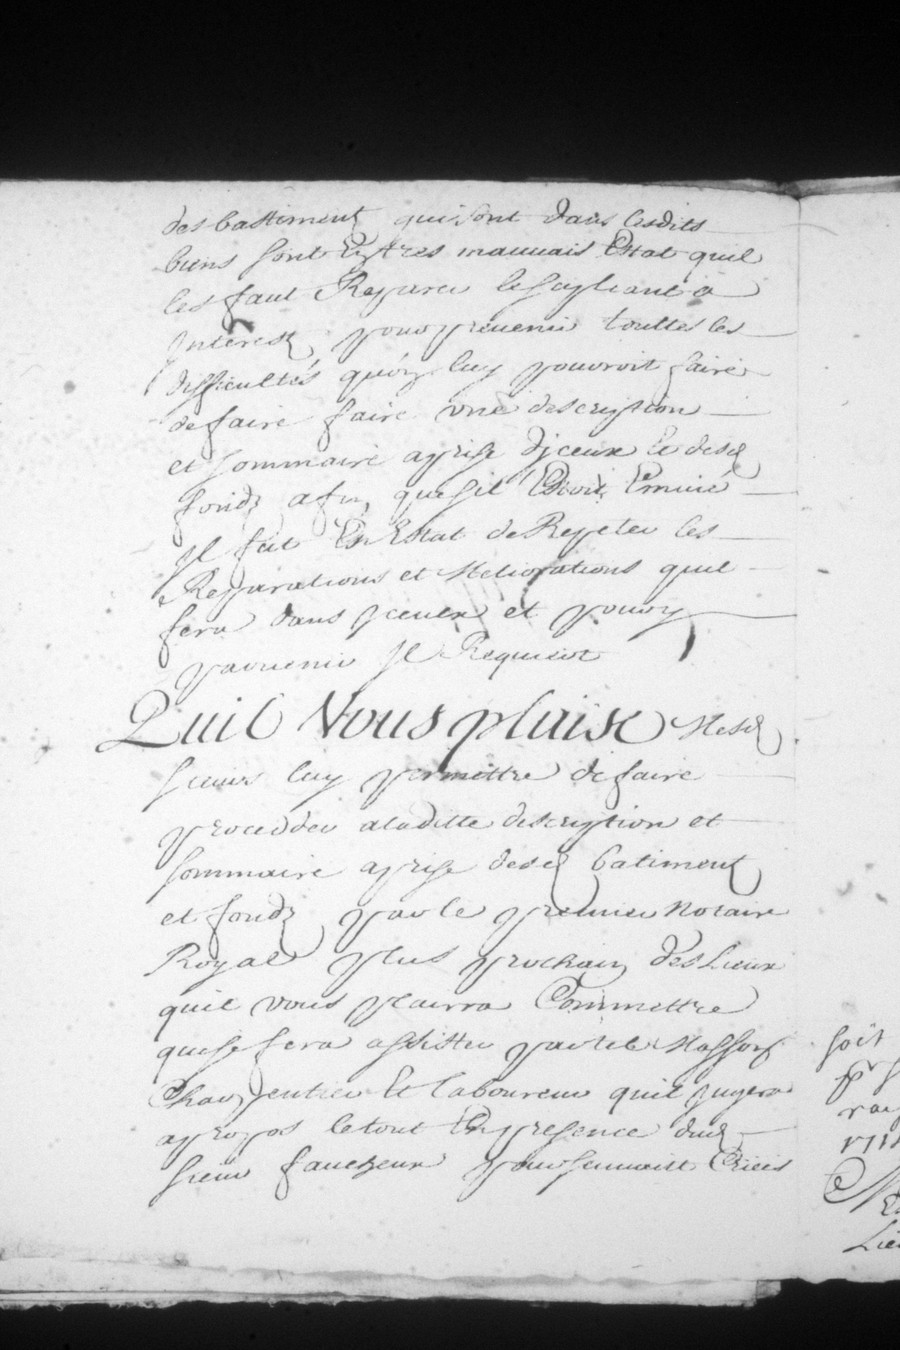 des bastiment qui sont dans lesdits
biens sont En tres mauuais Estat quil
les faut Reparer le supliant a
Interest pour preuenir touttes les
difficultés qu'on luy pouroit faire
de faire faire vne description
et sommaire aprise djceux et desd
fonds afin que sil Estoit Euincé
jl fut En Estat de Repeter les
Reparations et Meliorations quil
fera dans jceux et pour y
paruenir jl Requiert
Quil Vous plaise Mesd
sieurs luy permettre de faire
proceder a laditte description et
sommaire aprise desd batiment
et fonds par le premier Notaire
Royal plus prochain des Lieux
quil vous plairra Commettre
qui se fera assister par tels Masson
Charpentier Et laboureur quil jugera
apropos le tout En presence dud
sieur faucheur
soit